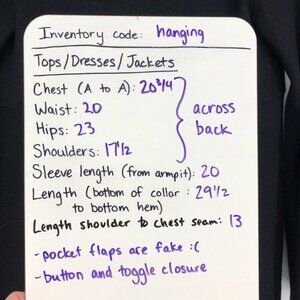 Inventory code: hanging
Tops/Dresses/Jackets
Chest (A to A): 20 3/4
Waist: 20
Hips: 23
Shoulders: 17 1/2
across
back
Sleeve length (from armpit): 20
Length (bottom of collar : 29 1/2
to bottom hem)
Length shoulder to chest seam: 13
- pocket flaps are fake :(
- button and toggle closure